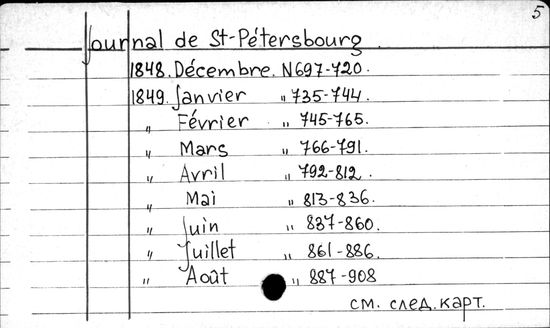 5
Journal de St-Pétersbourg.
1848. Décembre. N697-720.
1849. Janvier " 735-744.
" Février " 745-765.
" Mars " 766-791.
" Avril " 792-812.
" Mai " 813-836.
" Juin " 837-860.
" Juillet " 861-886.
" Août " 887-908
см. след. карт.